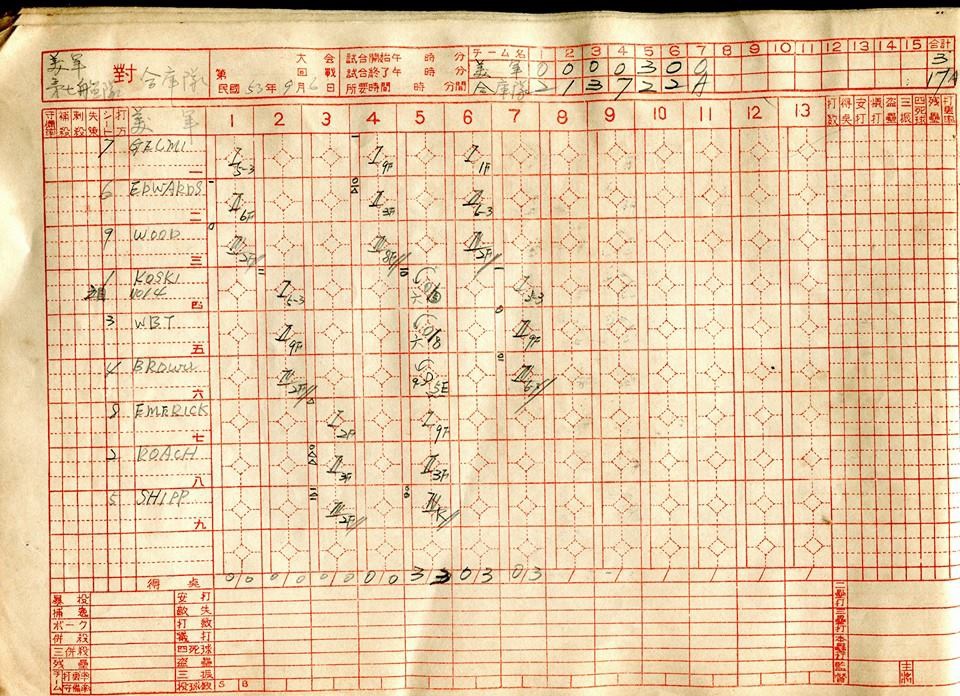 美軍 對 合庫隊
第七艦隊
大会 試合開始午 時 分
第 回戰 試合終了午 時 分
民國53年9月6日 所要時間 時 分間
チーム名 1 2 3 4 5 6 7 8 9 10 11 12 13 14 15 合計
美軍 0 0 0 0 3 0 0 3
合庫隊 2 1 3 7 2 2 A 17A
守備率 補殺 刺殺 失策 シート 打方 美軍 1 2 3 4 5 6 7 8 9 10 11 12 13 打数 得点 安打 犠打 盗塁 三振 四死球 残塁 打撃率
7 GELMI 一 I 5-3 I 9F I 1F
6 EDWARDS 二 II 6F II 3F II 6-3
9 WOOD 三 III 2F III 8F III 2F
1 KOSKI 四 I 5-3 I 5-3
3 WBT 五 II 9F II 9F
4 BROWN 六 III 2F III 6F
8 EMERICK 七 I 2F I 9F
2 ROACH 八 II 3F II 3F
5 SHIPP 九 III 2F III K
得点 0/0 0/0 0/0 0/0 3/3 0/3 0/3
暴投 安打
補逸 敵失
ボーク 打数
併殺 犠打
三併殺 四死球
残塁 盗塁
チーム 打撃率 三振
守備率 投球数 S B
二塁打 三塁打 本塁打 監督
主将